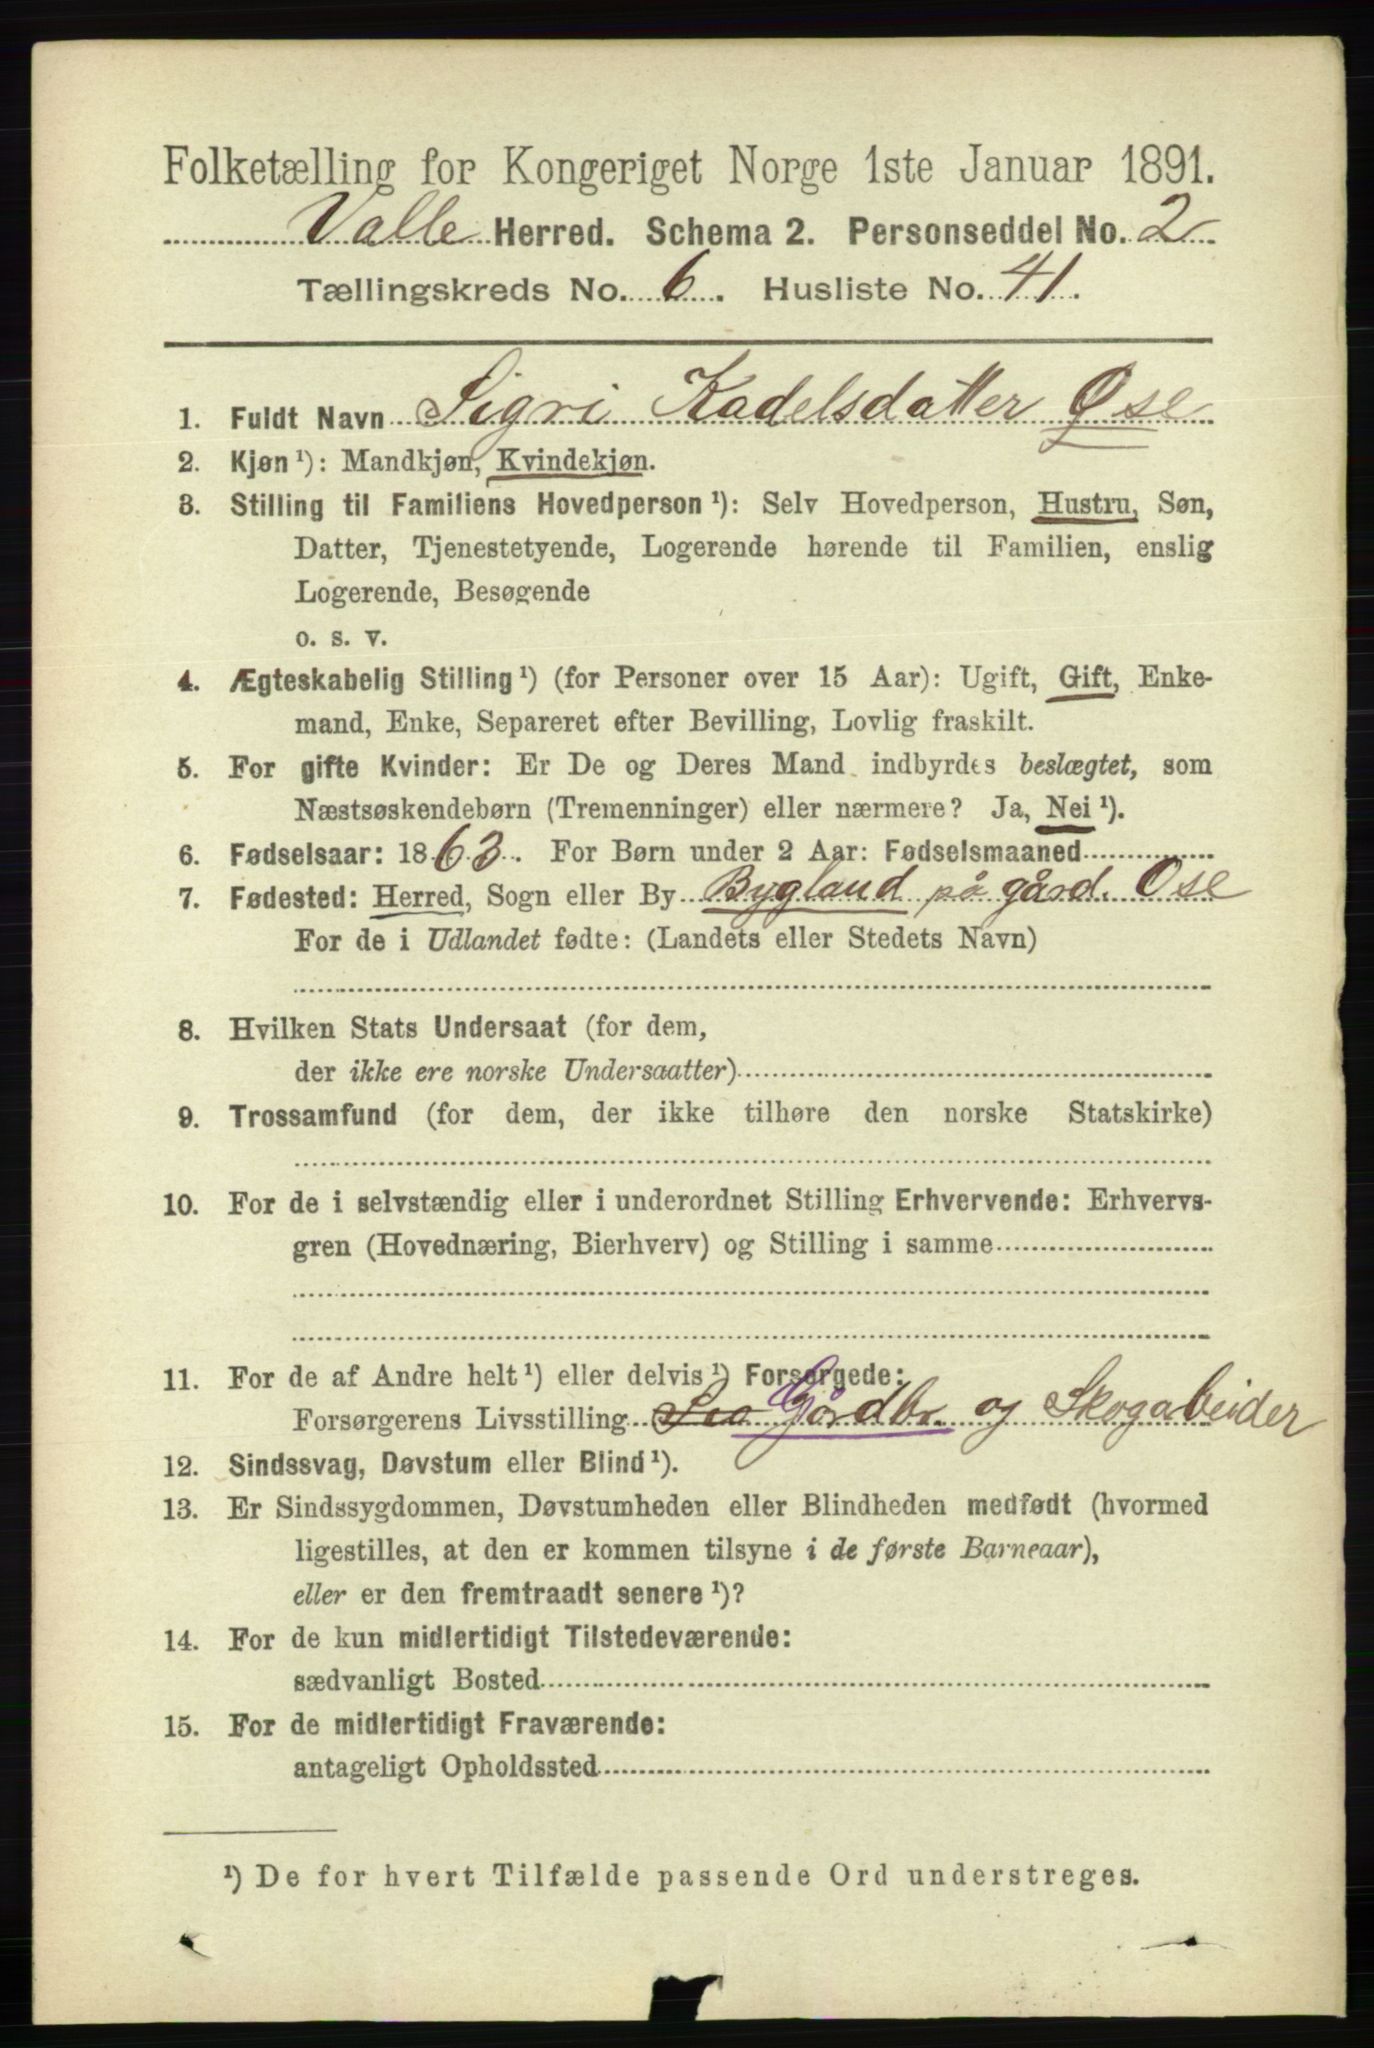 Folketælling for Kongeriget Norge 1ste Januar 1891.
Valle Herred. Schema 2. Personseddel No. 2
Tællingskreds No. 6. Husliste No. 41.
1. Fuldt Navn Sigri Kadelsdatter Øse
2. Kjøn ¹): Mandkjøn, Kvindekjøn.
3. Stilling til Familiens Hovedperson ¹): Selv Hovedperson, Hustru, Søn,
Datter, Tjenestetyende, Logerende hørende til Familien, enslig
Logerende, Besøgende
o. s. v.
4. Ægteskabelig Stilling ¹) (for Personer over 15 Aar): Ugift, Gift, Enke-
mand, Enke, Separeret efter Bevilling, Lovlig fraskilt.
5. For gifte Kvinder: Er De og Deres Mand indbyrdes beslægtet, som
Næstsøskendebørn (Tremenninger) eller nærmere? Ja, Nei ¹).
6. Fødselsaar: 1863. For Børn under 2 Aar: Fødselsmaaned
7. Fødested: Herred, Sogn eller By Bygland på gård. Ose
For de i Udlandet fødte: (Landets eller Stedets Navn)
8. Hvilken Stats Undersaat (for dem,
der ikke ere norske Undersaatter)
9. Trossamfund (for dem, der ikke tilhøre den norske Statskirke)
10. For de i selvstændig eller i underordnet Stilling Erhvervende: Erhvervs-
gren (Hovednæring, Bierhverv) og Stilling i samme
11. For de af Andre helt ¹) eller delvis ¹) Forsørgede:
Forsørgerens Livsstilling Gårdbr. og Skogabeider
12. Sindssvag, Døvstum eller Blind ¹).
13. Er Sindssygdommen, Døvstumheden eller Blindheden medfødt (hvormed
ligestilles, at den er kommen tilsyne i de første Barneaar),
eller er den fremtraadt senere ¹)?
14. For de kun midlertidigt Tilstedeværende:
sædvanligt Bosted
15. For de midlertidigt Fraværende:
antageligt Opholdssted
¹) De for hvert Tilfælde passende Ord understreges.